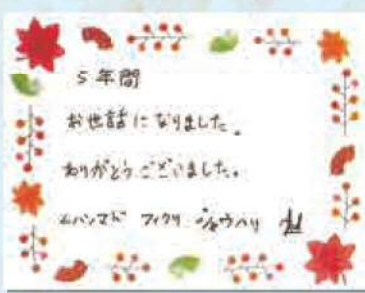 5年間
お世話になりました。
ありがとうございました。
ムハンマド フィクリ ジャウハリ